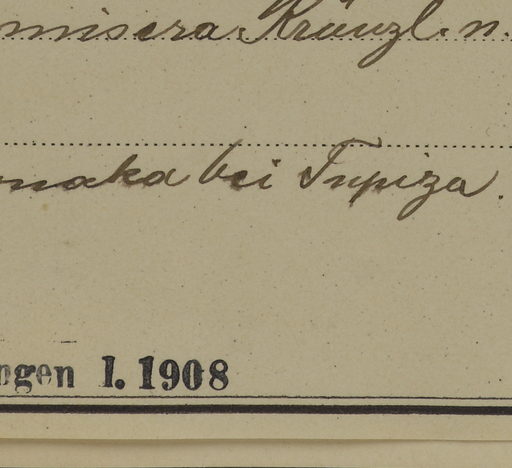 misera Kränzl. n.
onaka bei Tupiza.
ogen I. 1908